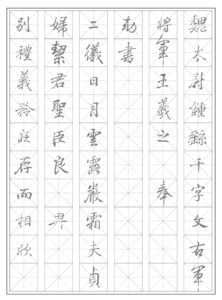 魏太尉鍾繇千字文右軍
將軍王羲之奉
勅書
二儀日月雲露嚴霜夫貞
婦絜君聖臣良卑
別禮義矜莊存而相欣